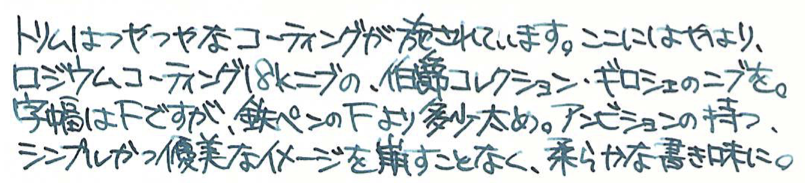 トリムはつやつやなコーティングが施されています。ここにはやはり、
ロジウムコーティング18kニブの、伯爵コレクション・ギロシェのニブを。
字幅はFですが、鉄ペンのFより多少太め。アンビションの持つ、
シンプルかつ優美なイメージを崩すことなく、柔らかな書き味に。